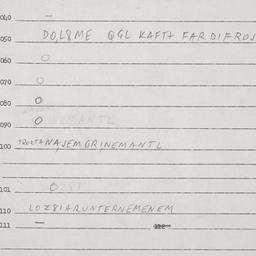 040 —
050 DO,L8ME QGL KAFTA FARDIFROJ
060 O
070 O
080 O
090 O
100 TROZTANAJEM.GRINEMANTL
101 O
110 LOZ8IARUNTERNEMENEM
111 —